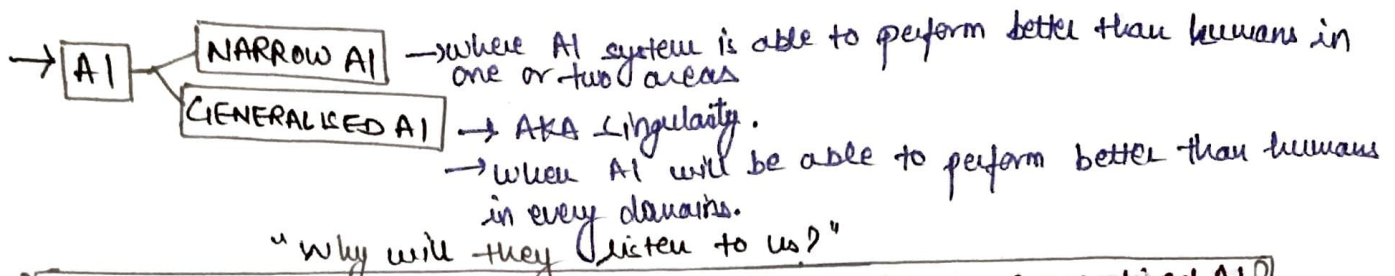 → AI NARROW AI → where AI system is able to perform better than humans in
one or two areas
GENERALISED AI → AKA Singularity.
→ when AI will be able to perform better than humans
in every domains.
"Why will they listen to us?"